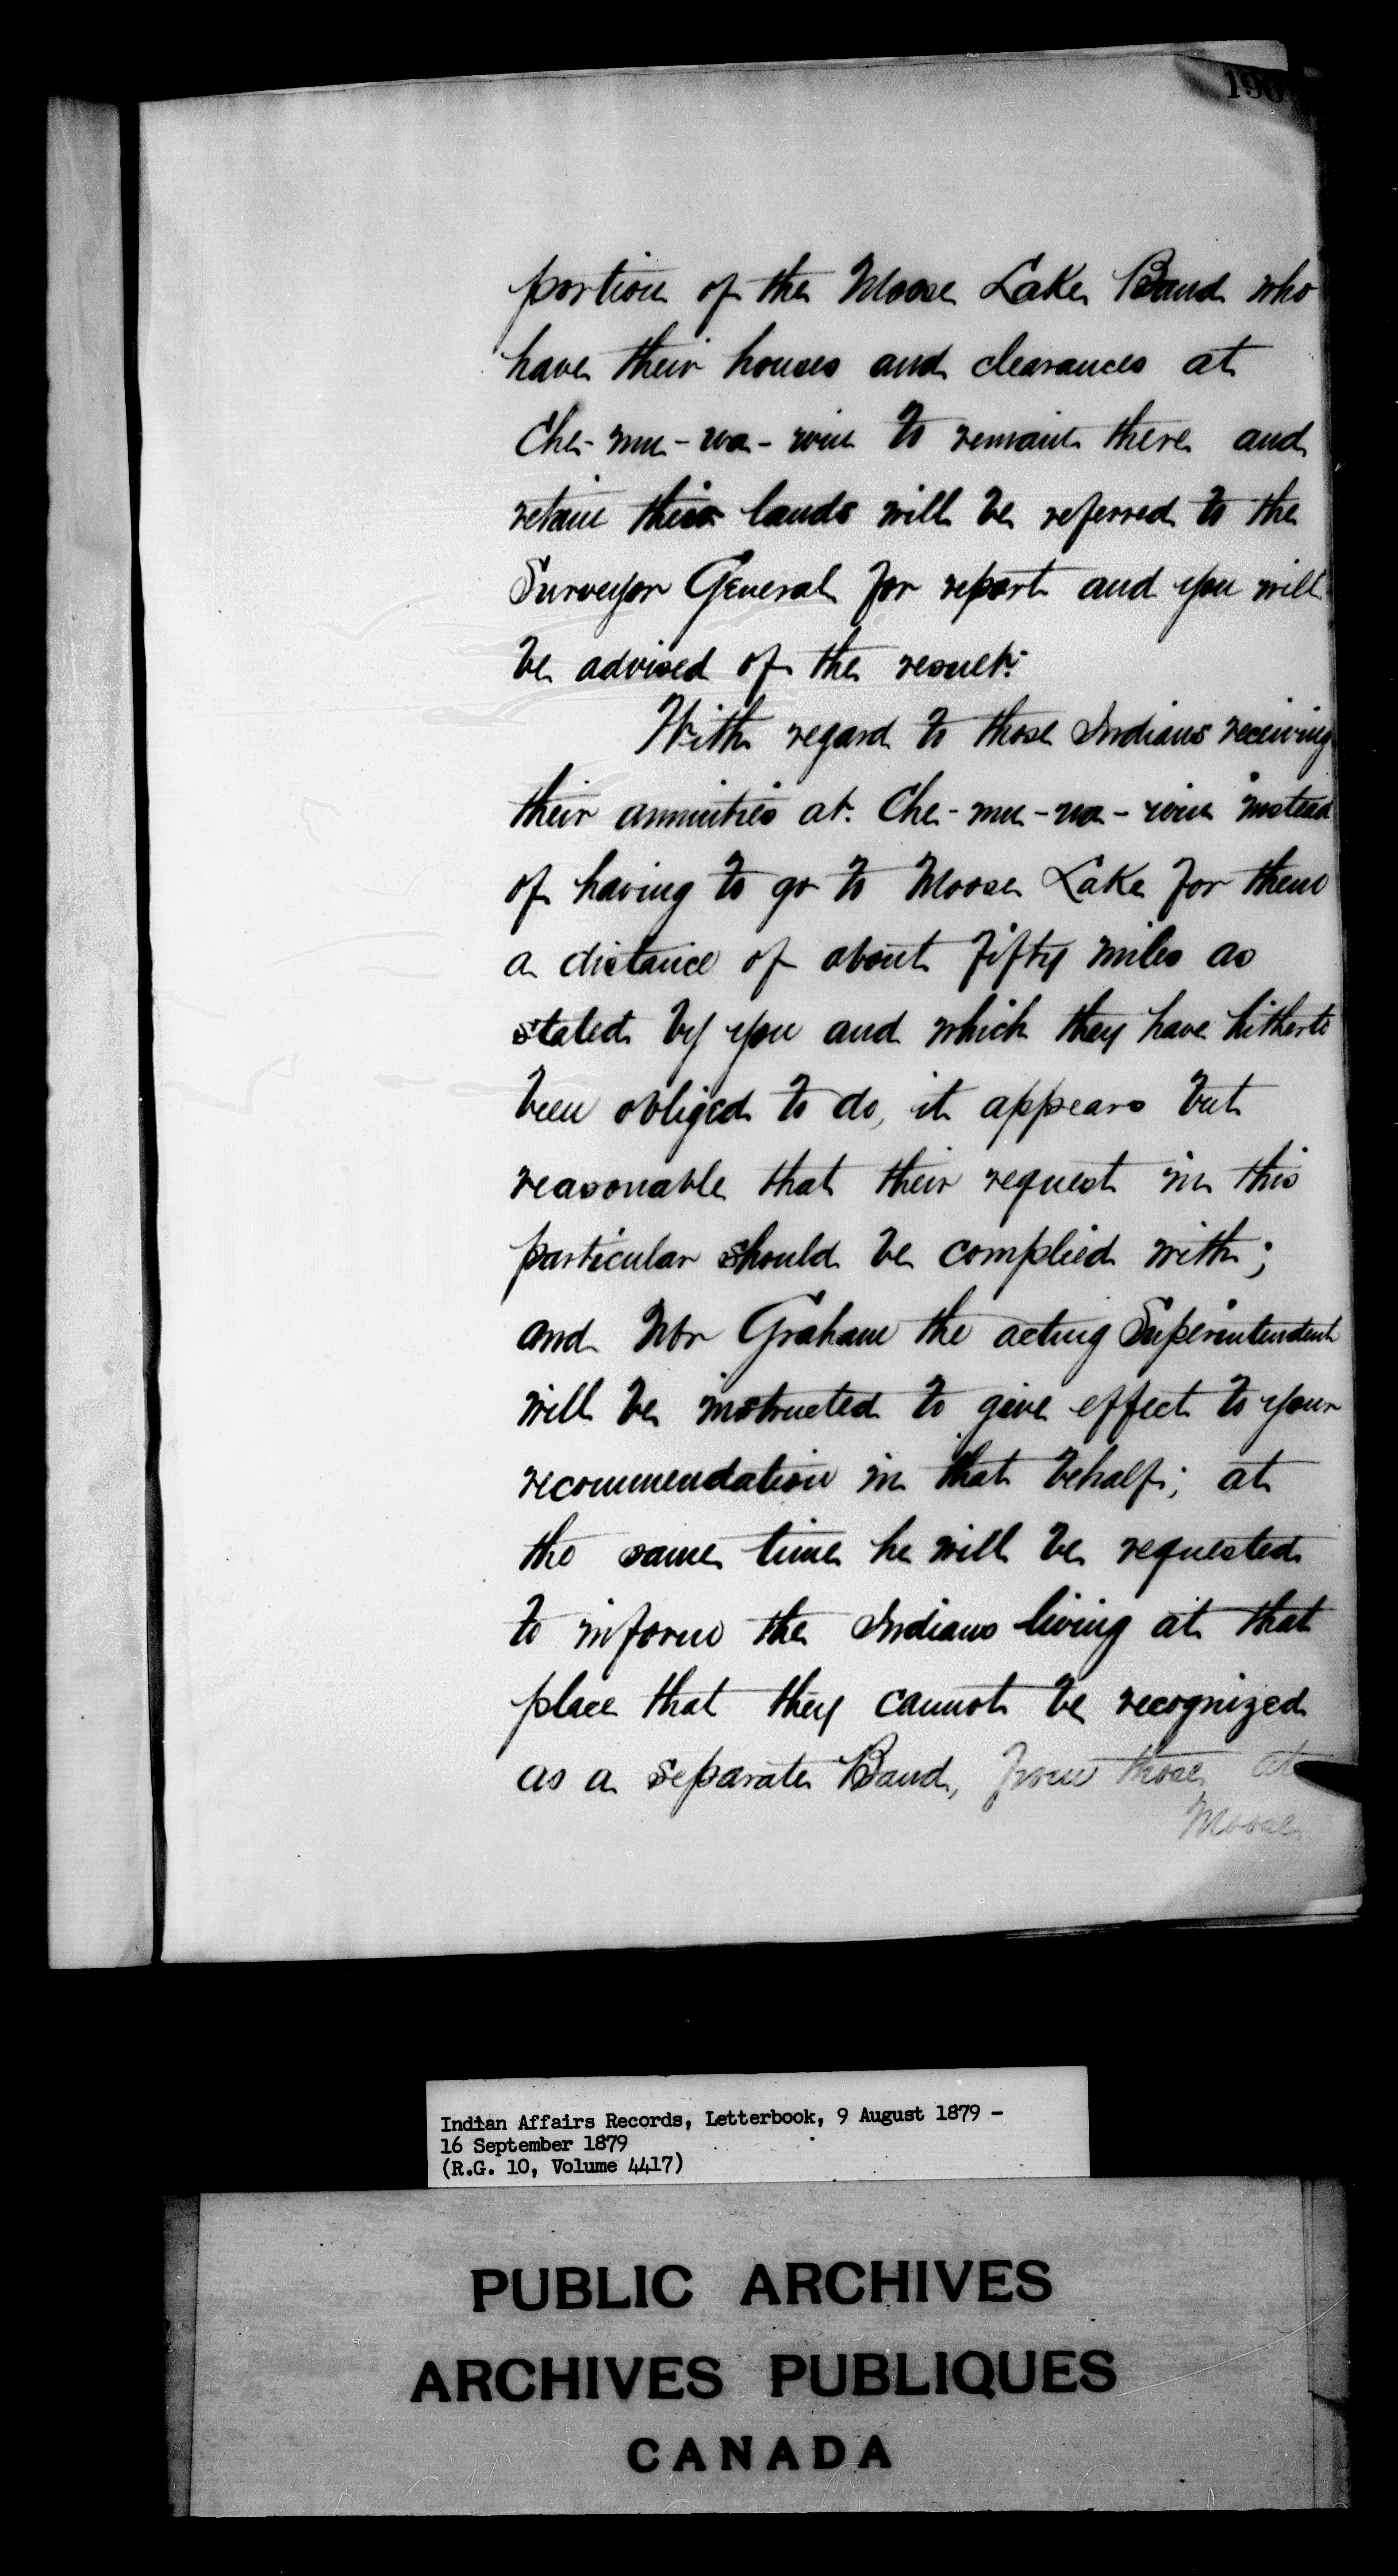 portion of the Moose Lake Band who
have their houses and clearances at
Che-mu-wa-win to remain there and
retain their lands will be referred to the
Surveyor General for report and you will
be advised of the result:
With regard to those Indians receiving
their annuities at Che-mu-wa-win instead
of having to go to Moose Lake for them
a distance of about fifty miles as
stated by you and which they have hitherto
been obliged to do, it appears but
reasonable that their request in this
particular should be complied with;
and Mr Graham the acting Superintendent
will be instructed to give effect to your
recommendation in that behalf; at
the same time he will be requested
to inform the Indians living at that
place that they cannot be recognized
as a separate Band, from those at
Moose
Indian Affairs Records, Letterbook, 9 August 1879 -
16 September 1879
(R.G. 10, Volume 4417)
PUBLIC ARCHIVES
ARCHIVES PUBLIQUES
CANADA